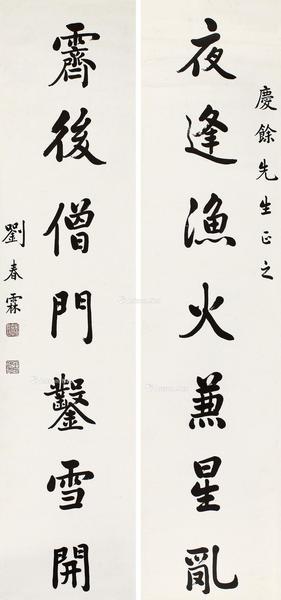 慶餘先生正之
夜逢漁火兼星亂
霽後僧門鑿雪開
劉春霖